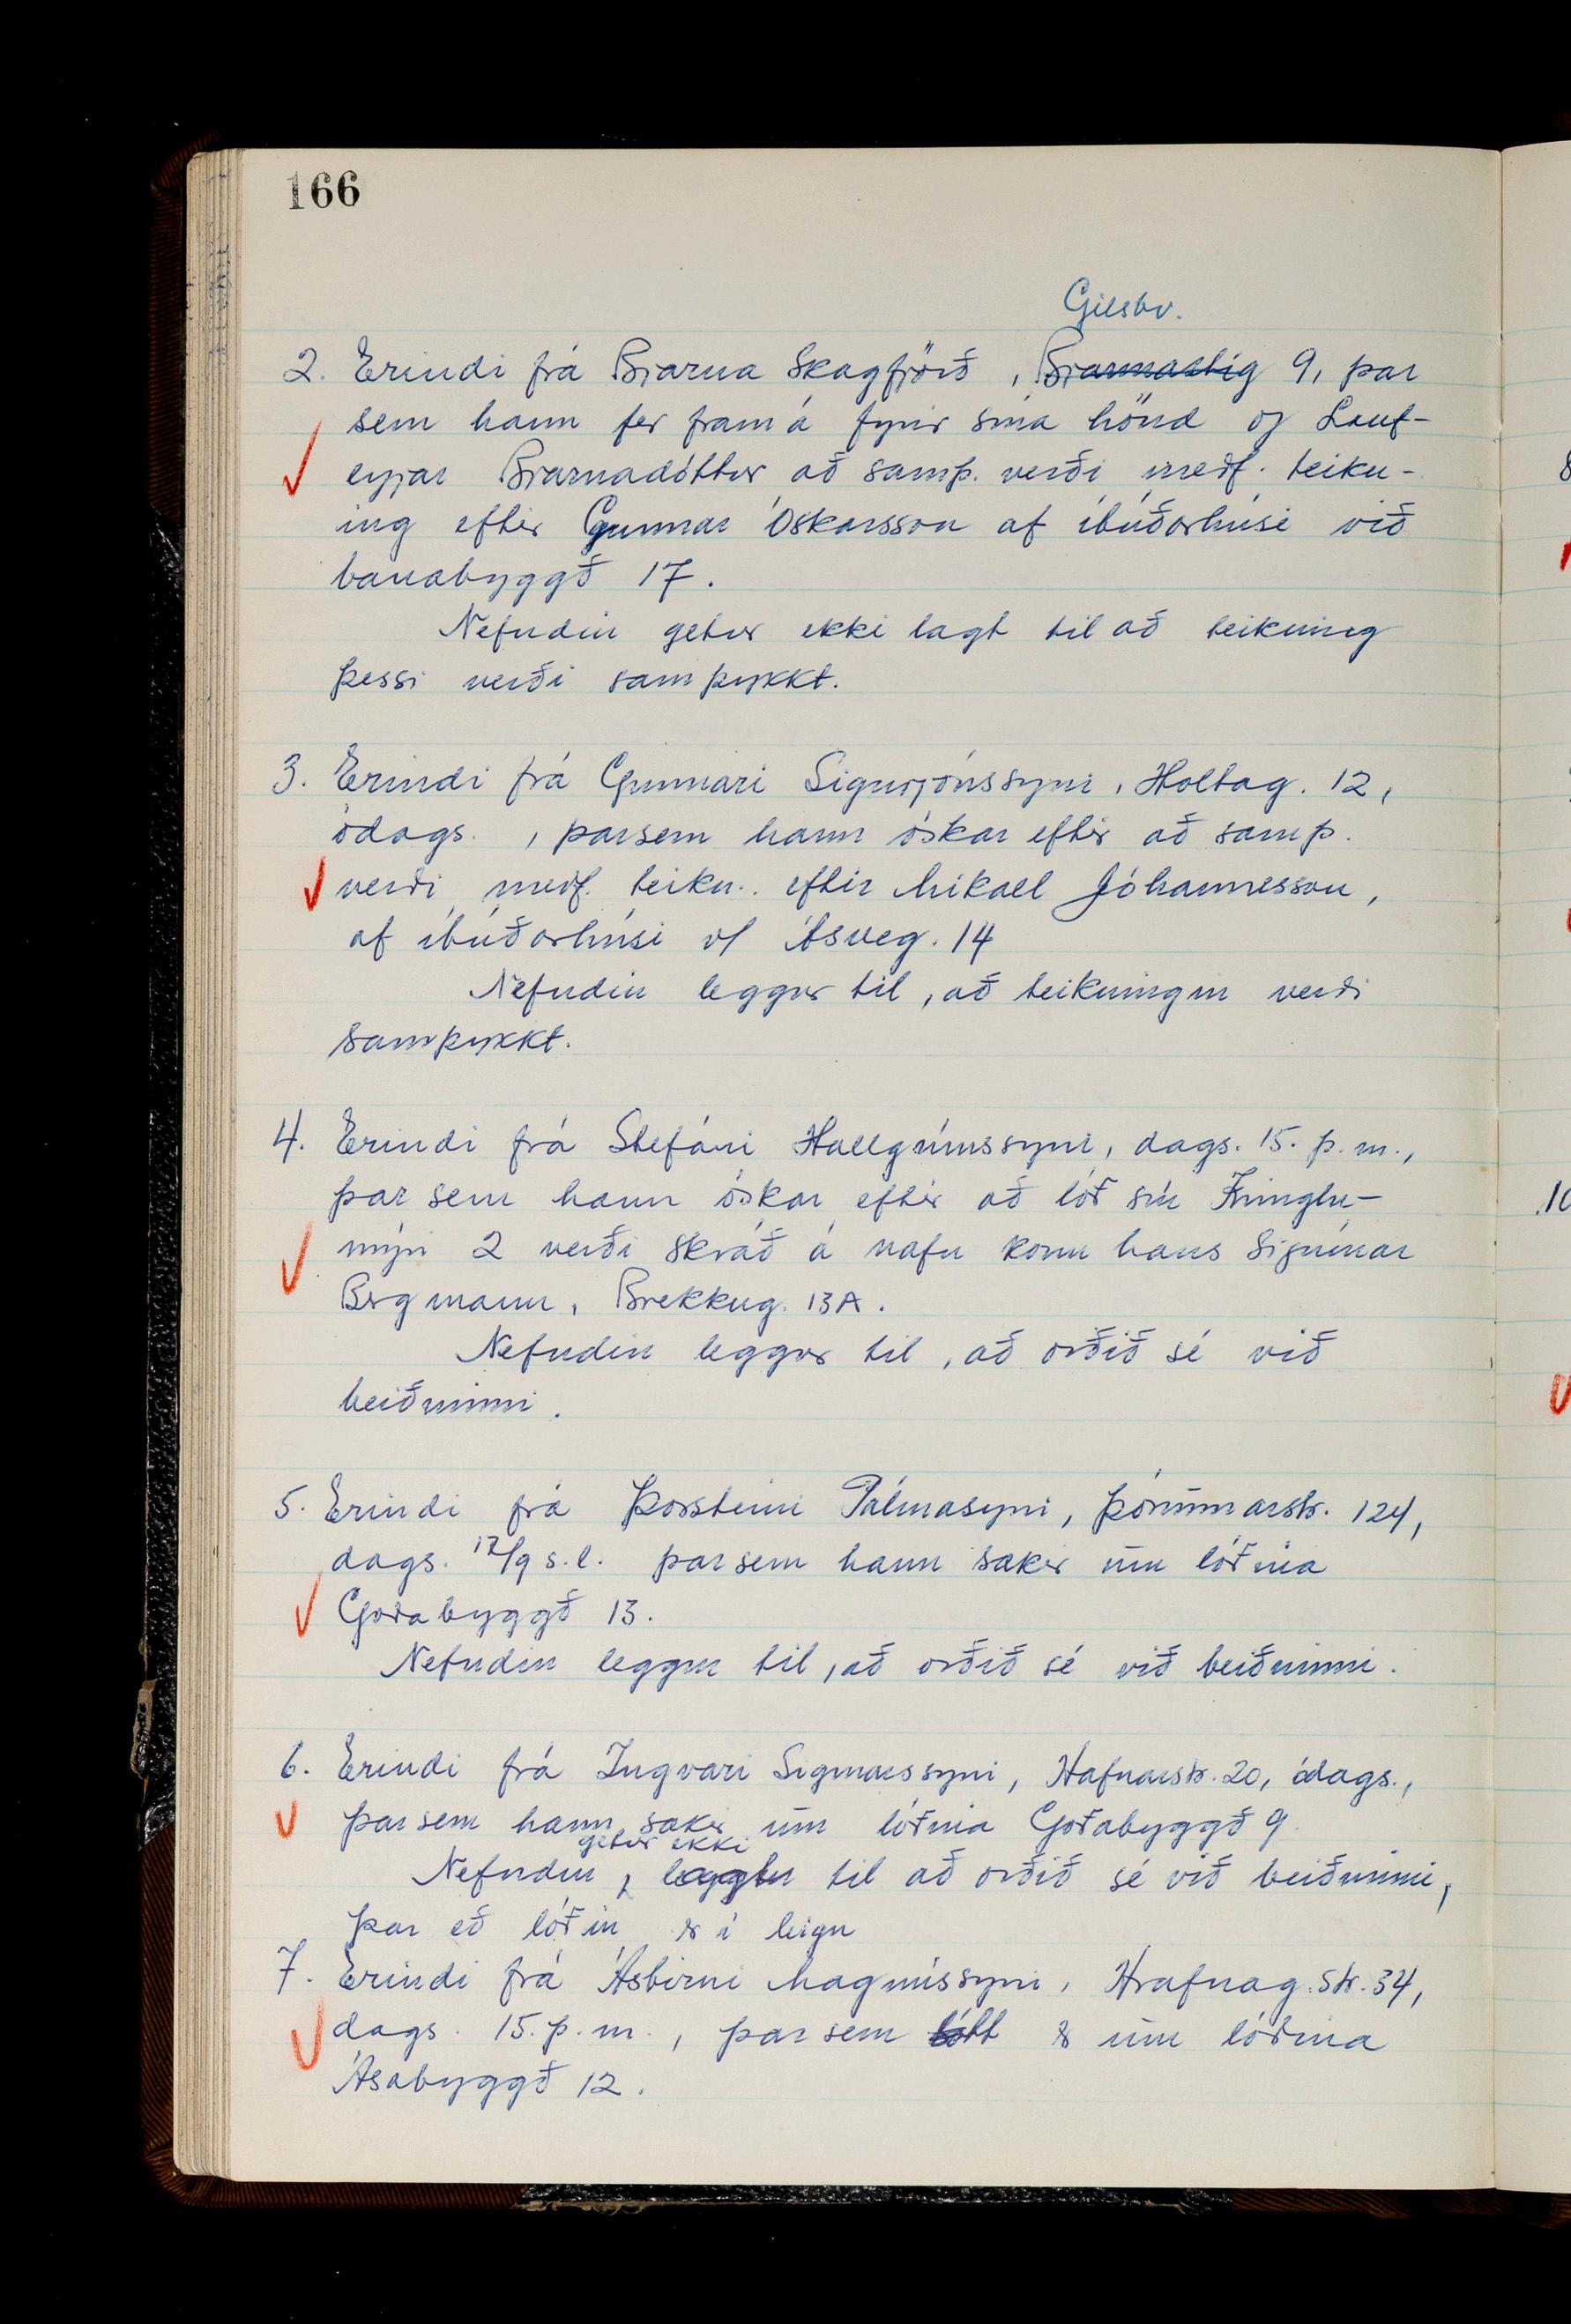 166
Gilsbr.
2. Erindi frá Bjarna Skagfjörð, Bjarmastíg 9, þar
sem hann fer fram á fyrir sína hönd og Lauf-
eyjar Bjarnadóttur að samþ. verði meðf. teikn-
ing eftir Gunnar Óskarsson af íbúðarhúsi við
Vanabyggð 17.
Nefndin getur ekki lagt til að teikning
þessi verði samþykkt.
3. Erindi frá Gunnari Sigurjónssyni, Holtag. 12,
ódags., þar sem hann óskar eftir að samþ.
verði meðf. teikn. eftir Mikael Jóhannesson,
af íbúðarhúsi v/ Ásveg. 14
Nefndin leggur til, að teikningin verði
samþykkt.
4. Erindi frá Stefáni Hallgrímssyni, dags. 15. þ.m.,
þar sem hann óskar eftir að lóð sín Kringlu-
mýri 2 verði skráð á nafn konu hans Sigrúnar
Bergmann, Brekkug. 13A.
Nefndin leggur til, að orðið sé við
beiðninni.
5. Erindi frá Þorsteini Pálmasyni, Þórunnarstr. 124,
dags. 12/9 s.l. þar sem hann sækir um lóðina
Goðabyggð 13.
Nefndin leggur til, að orðið sé við beiðninni.
6. Erindi frá Ingvari Sigmarssyni, Hafnarstr. 20, ódags.,
þar sem hann sækir um lóðina Goðabyggð 9.
getur ekki
Nefndin, lagt til að orðið sé við beiðninni,
þar eð lóðin er í leigu
7. Erindi frá Ásbirni Magnússyni, Hrafnag.str. 34,
dags. 15. þ.m., þar sem sótt er um lóðina
Ásabyggð 12.